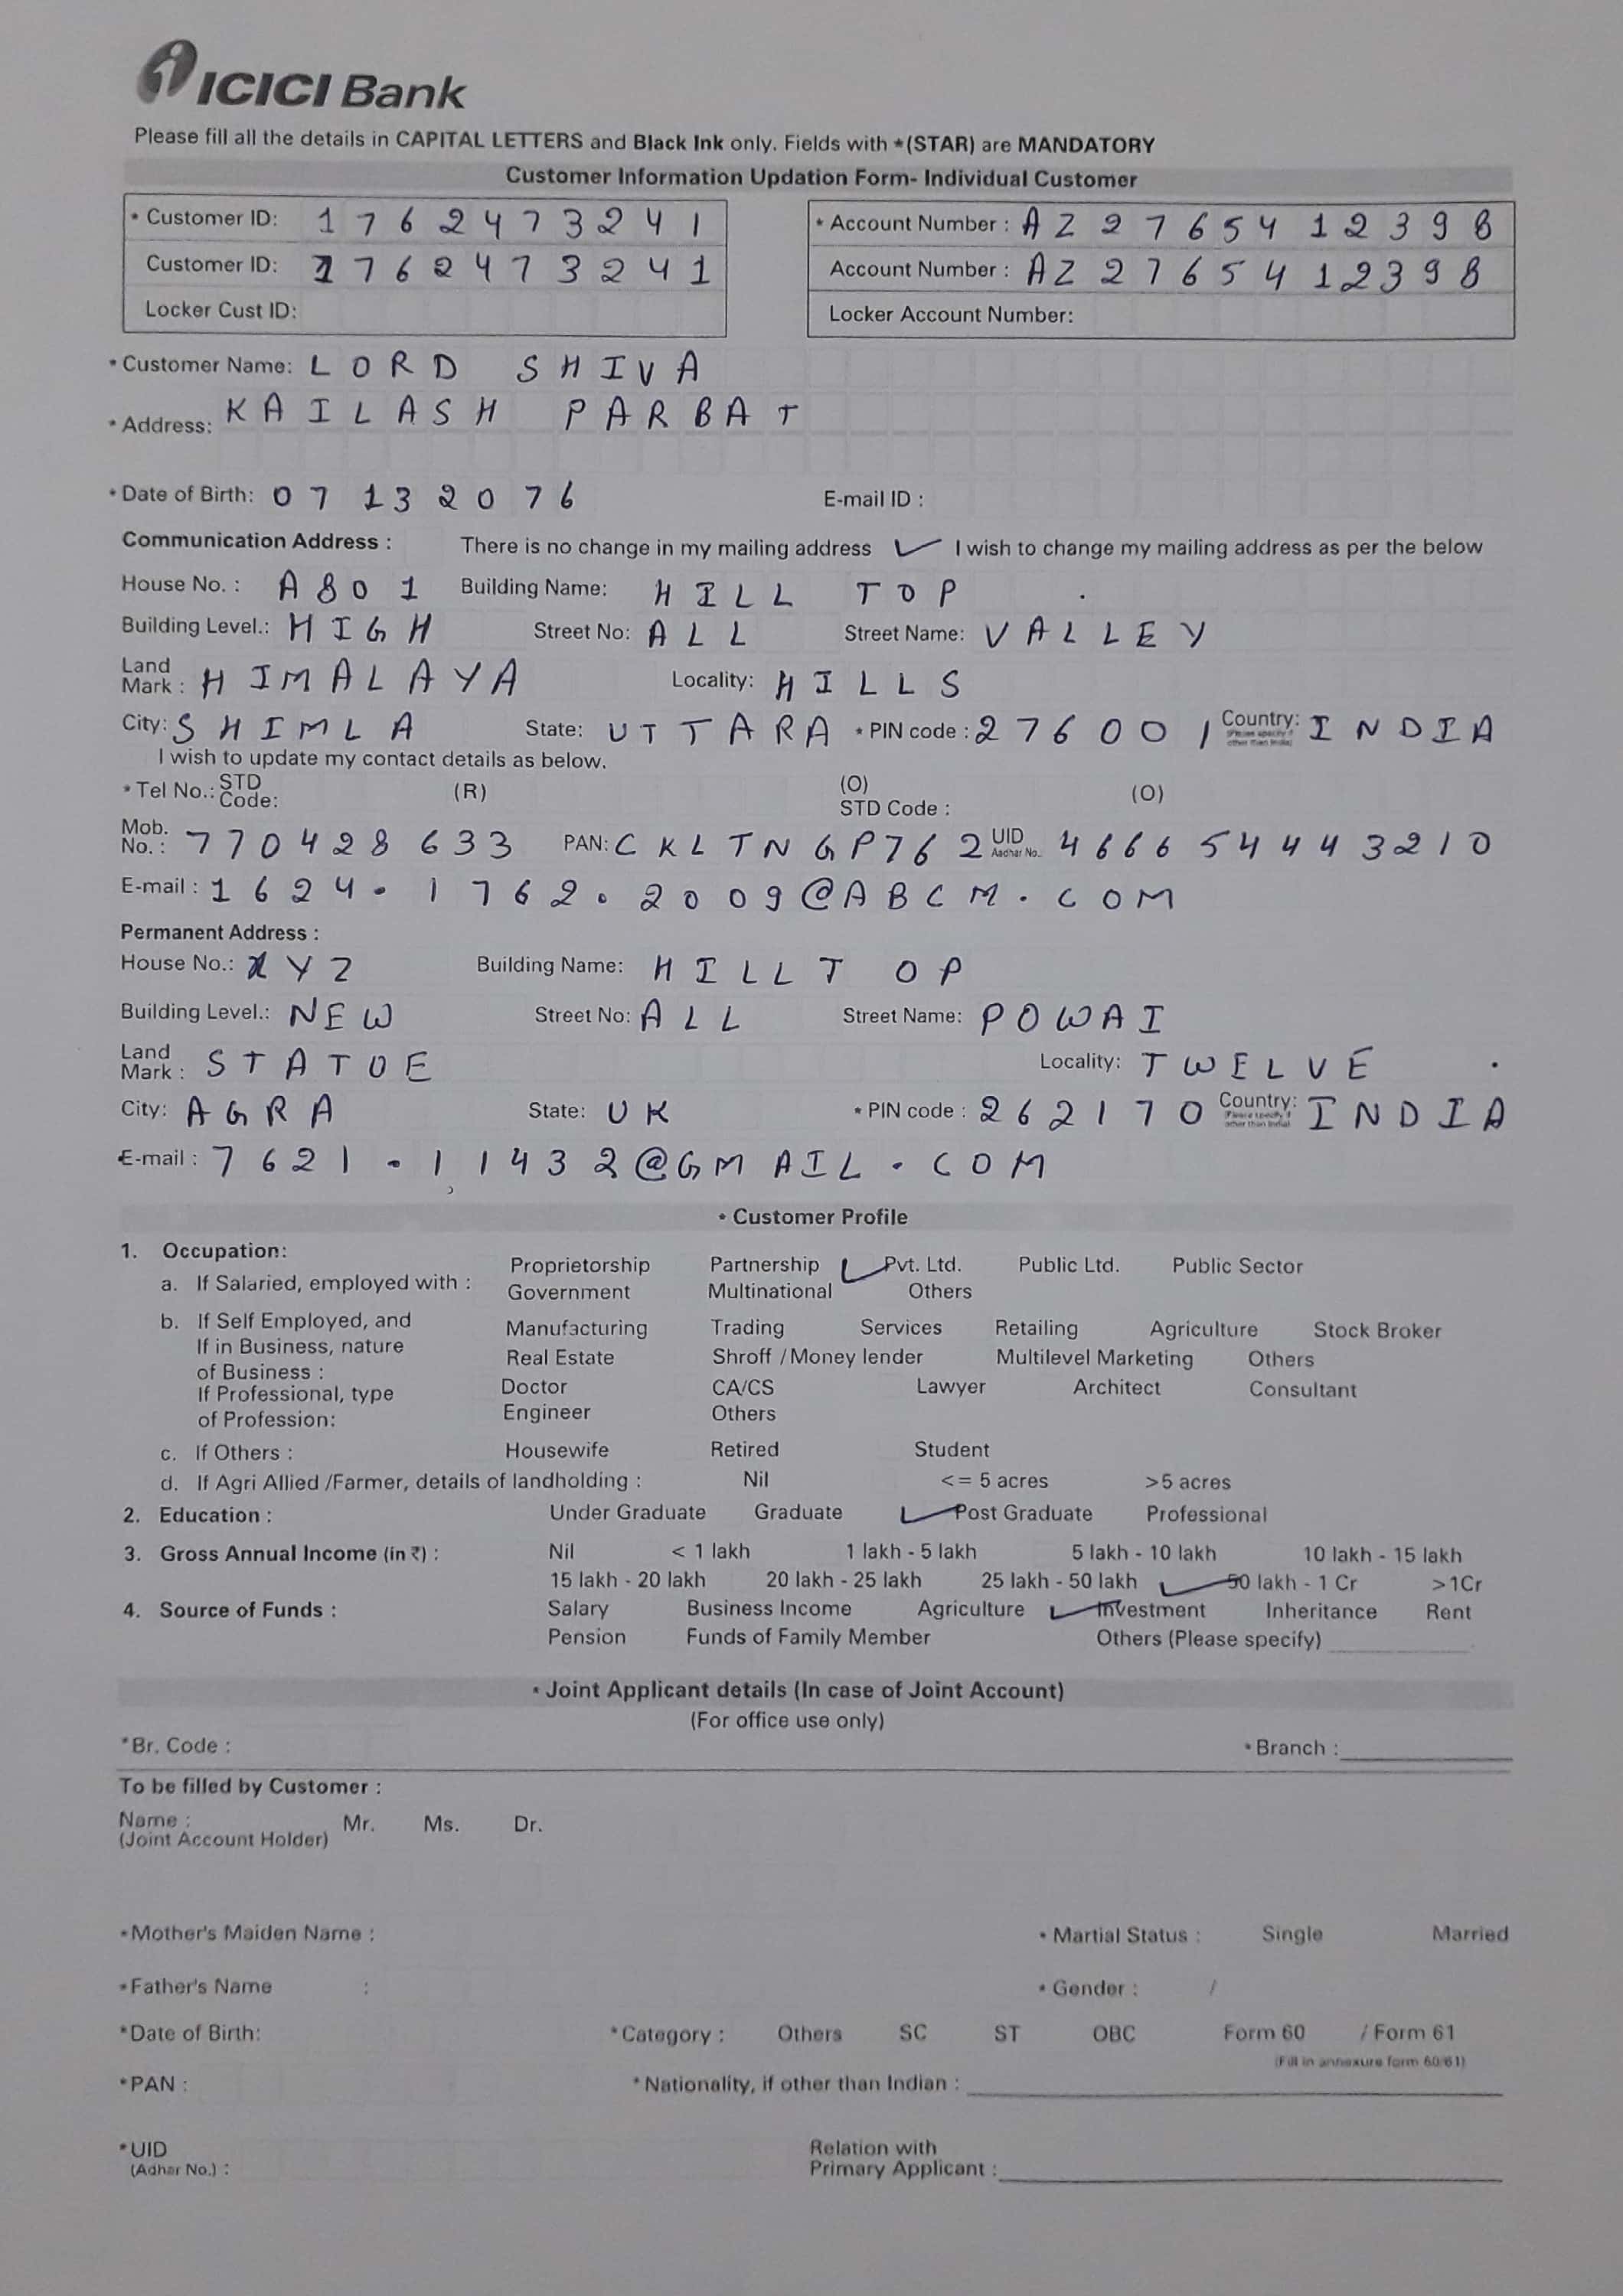 ICICI Bank
Please fill all the details in CAPITAL LETTERS and Black Ink only. Fields with *(STAR) are MANDATORY
Customer Information Updation Form- Individual Customer
* Customer ID: 1762473241 * Account Number : AZ27654 12398
Customer ID: 1762473241 Account Number : AZ27654 12398
Locker Cust ID: Locker Account Number:
* Customer Name: LORD SHIVA
* Address: KAILASH PARBAT
* Date of Birth: 07 13 2076 E-mail ID :
Communication Address : There is no change in my mailing address ✓ I wish to change my mailing address as per the below
House No. : A801 Building Name: HILL TOP
Building Level.: HIGH Street No: ALL Street Name: VALLEY
Land Mark : HIMALAYA Locality: HILLS
City: SHIMLA State: UTTARA * PIN code : 276001 Country: (Please specify if other than India) INDIA
I wish to update my contact details as below.
* Tel No.: STD Code: (R) (O) STD Code : (O)
Mob. No. : 770428 633 PAN: CKLTNGP762 UID Aadhar No.. 466654443210
E-mail : 1624.1762.2009@ABCM.COM
Permanent Address :
House No.: XYZ Building Name: HILLT OP
Building Level.: NEW Street No: ALL Street Name: POWAI
Land Mark : STATUE Locality: TWELVE
City: AGRA State: UK * PIN code : 262170 Country: (Please specify if other than India) INDIA
E-mail : 7621.11432@GMAIL.COM
* Customer Profile
1. Occupation:
a. If Salaried, employed with : Proprietorship Partnership ✓ Pvt. Ltd. Public Ltd. Public Sector
Government Multinational Others
b. If Self Employed, and If in Business, nature of Business : Manufacturing Trading Services Retailing Agriculture Stock Broker
Real Estate Shroff / Money lender Multilevel Marketing Others
If Professional, type of Profession: Doctor CA/CS Lawyer Architect Consultant
Engineer Others
c. If Others : Housewife Retired Student
d. If Agri Allied /Farmer, details of landholding : Nil <= 5 acres >5 acres
2. Education : Under Graduate Graduate ✓ Post Graduate Professional
3. Gross Annual Income (in ₹) : Nil < 1 lakh 1 lakh - 5 lakh 5 lakh - 10 lakh 10 lakh - 15 lakh
15 lakh - 20 lakh 20 lakh - 25 lakh 25 lakh - 50 lakh ✓ 50 lakh - 1 Cr >1Cr
4. Source of Funds : Salary Business Income Agriculture ✓ Investment Inheritance Rent
Pension Funds of Family Member Others (Please specify)
* Joint Applicant details (In case of Joint Account)
(For office use only)
*Br. Code : * Branch :
To be filled by Customer :
Name : (Joint Account Holder) Mr. Ms. Dr.
*Mother's Maiden Name : * Martial Status : Single Married
*Father's Name : * Gender : /
*Date of Birth: *Category : Others SC ST OBC Form 60 / Form 61
(Fill in annexure form 60/61)
*PAN : *Nationality, if other than Indian :
*UID (Adhar No.) : Relation with Primary Applicant :